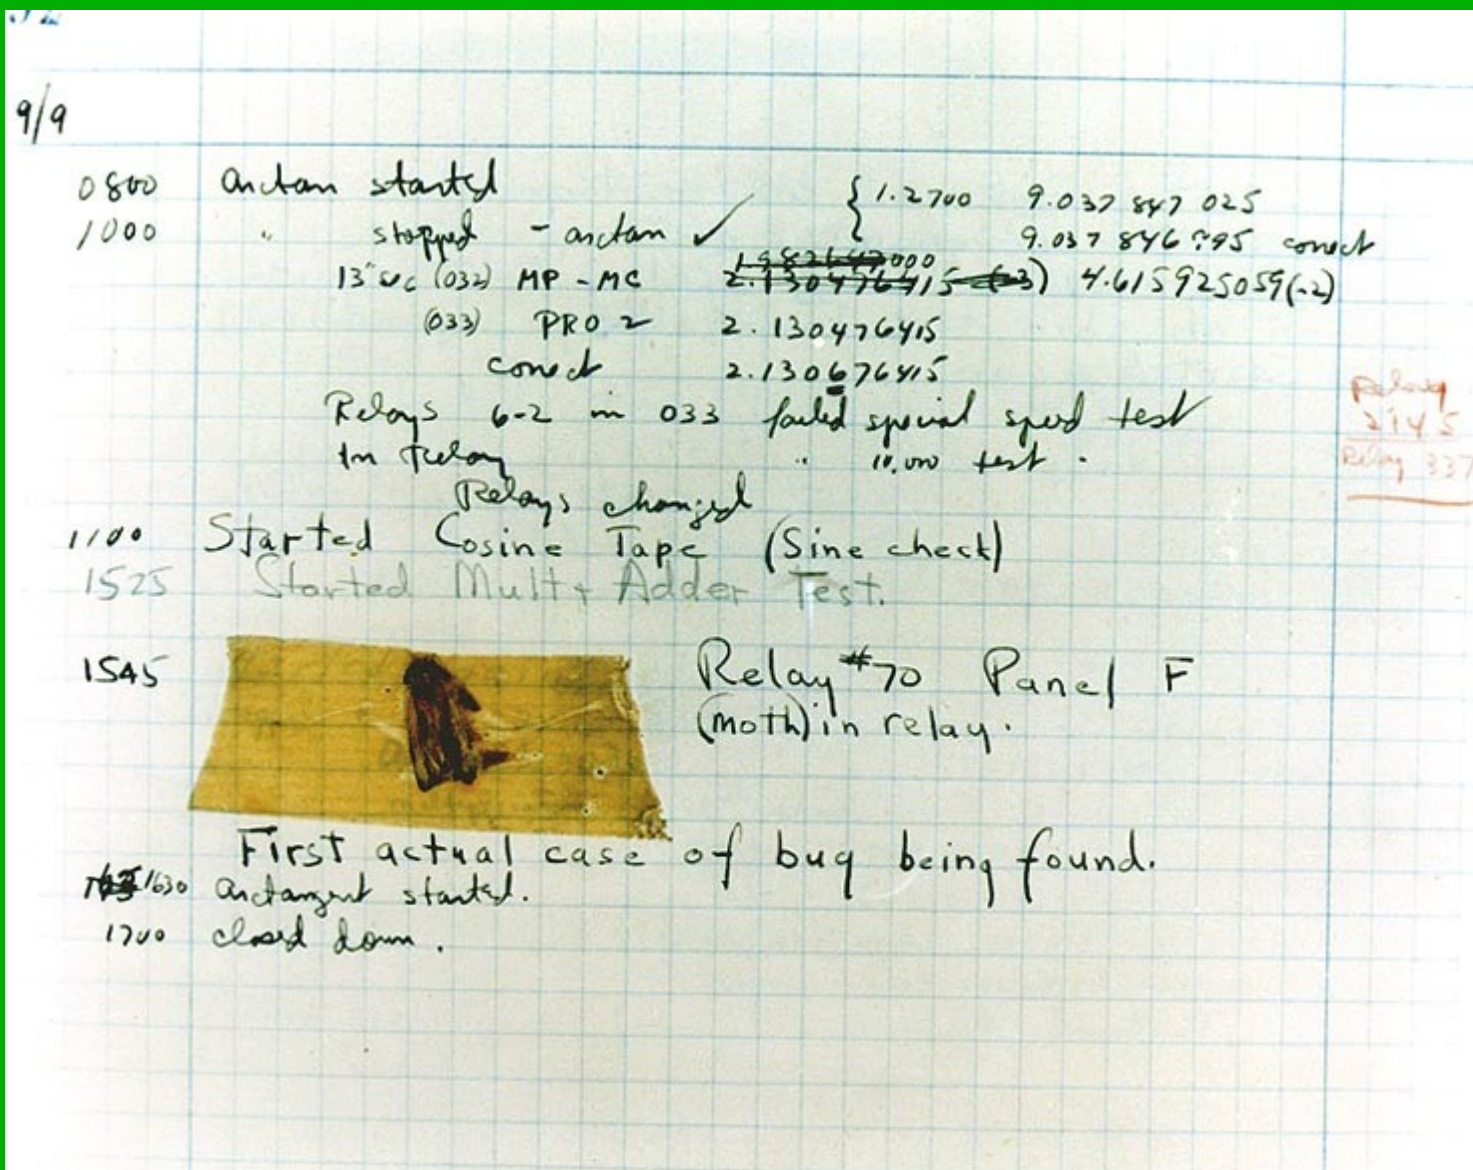 9/9
0800 arctan started { 1.2700 9.037 847 025
1000 " stopped - arctan ✓ { 9.037 846 995 correct
13" uc (032) MP - MC 1.982647000
2.130476415 (-3) 4.615925059(-2)
(033) PRO 2 2.130476415
correct 2.130676415
Relays 6-2 in 033 failed special speed test
In Relay " 10,000 test .
Relay
2145
Relay 337
Relays changed
1100 Started Cosine Tape (Sine check)
1525 Started Mult + Adder Test.
1545 Relay #70 Panel F
(moth) in relay.
First actual case of bug being found.
1630 arctangent started.
1700 closed down .